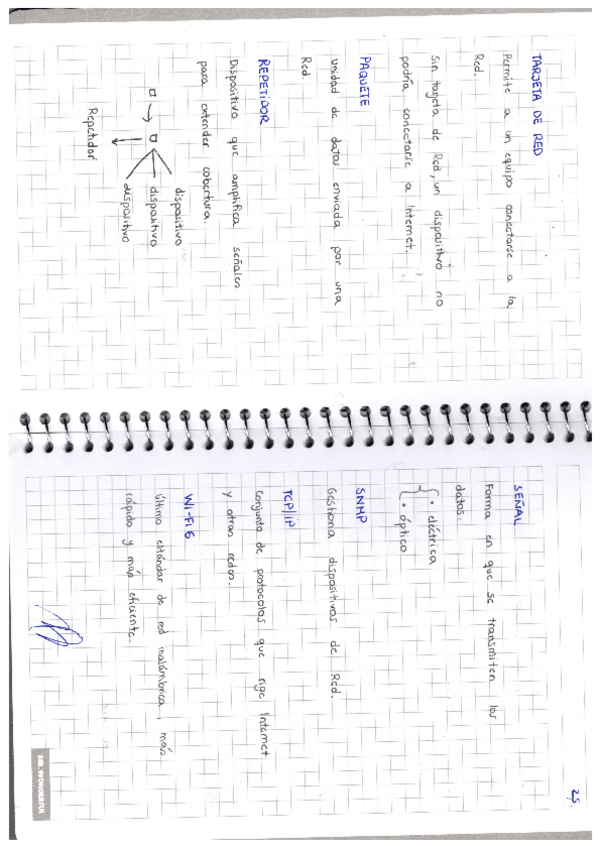 TARJETA DE RED
Permite a un equipo conectarse a la
Red.
Sin tarjeta de Red, un dispositivo no
podría conectarse a Internet.
PAQUETE
Unidad de datos enviada por una
Red.
REPETIDOR
Dispositivo que amplifica señales
para extender cobertura.
dispositivo
dispositivo
dispositivo
Repetidor
25
SEÑAL
Forma en que se transmiten los
datos:
• eléctrica
• óptico
SNMP
Gestiona dispositivos de Red.
TCP/IP
Conjunto de protocolos que rige Internet
y otras redes.
WI-FI 6
Último estándar de red inalámbrica, más
rápido y más eficiente.
MR. WONDERFUL